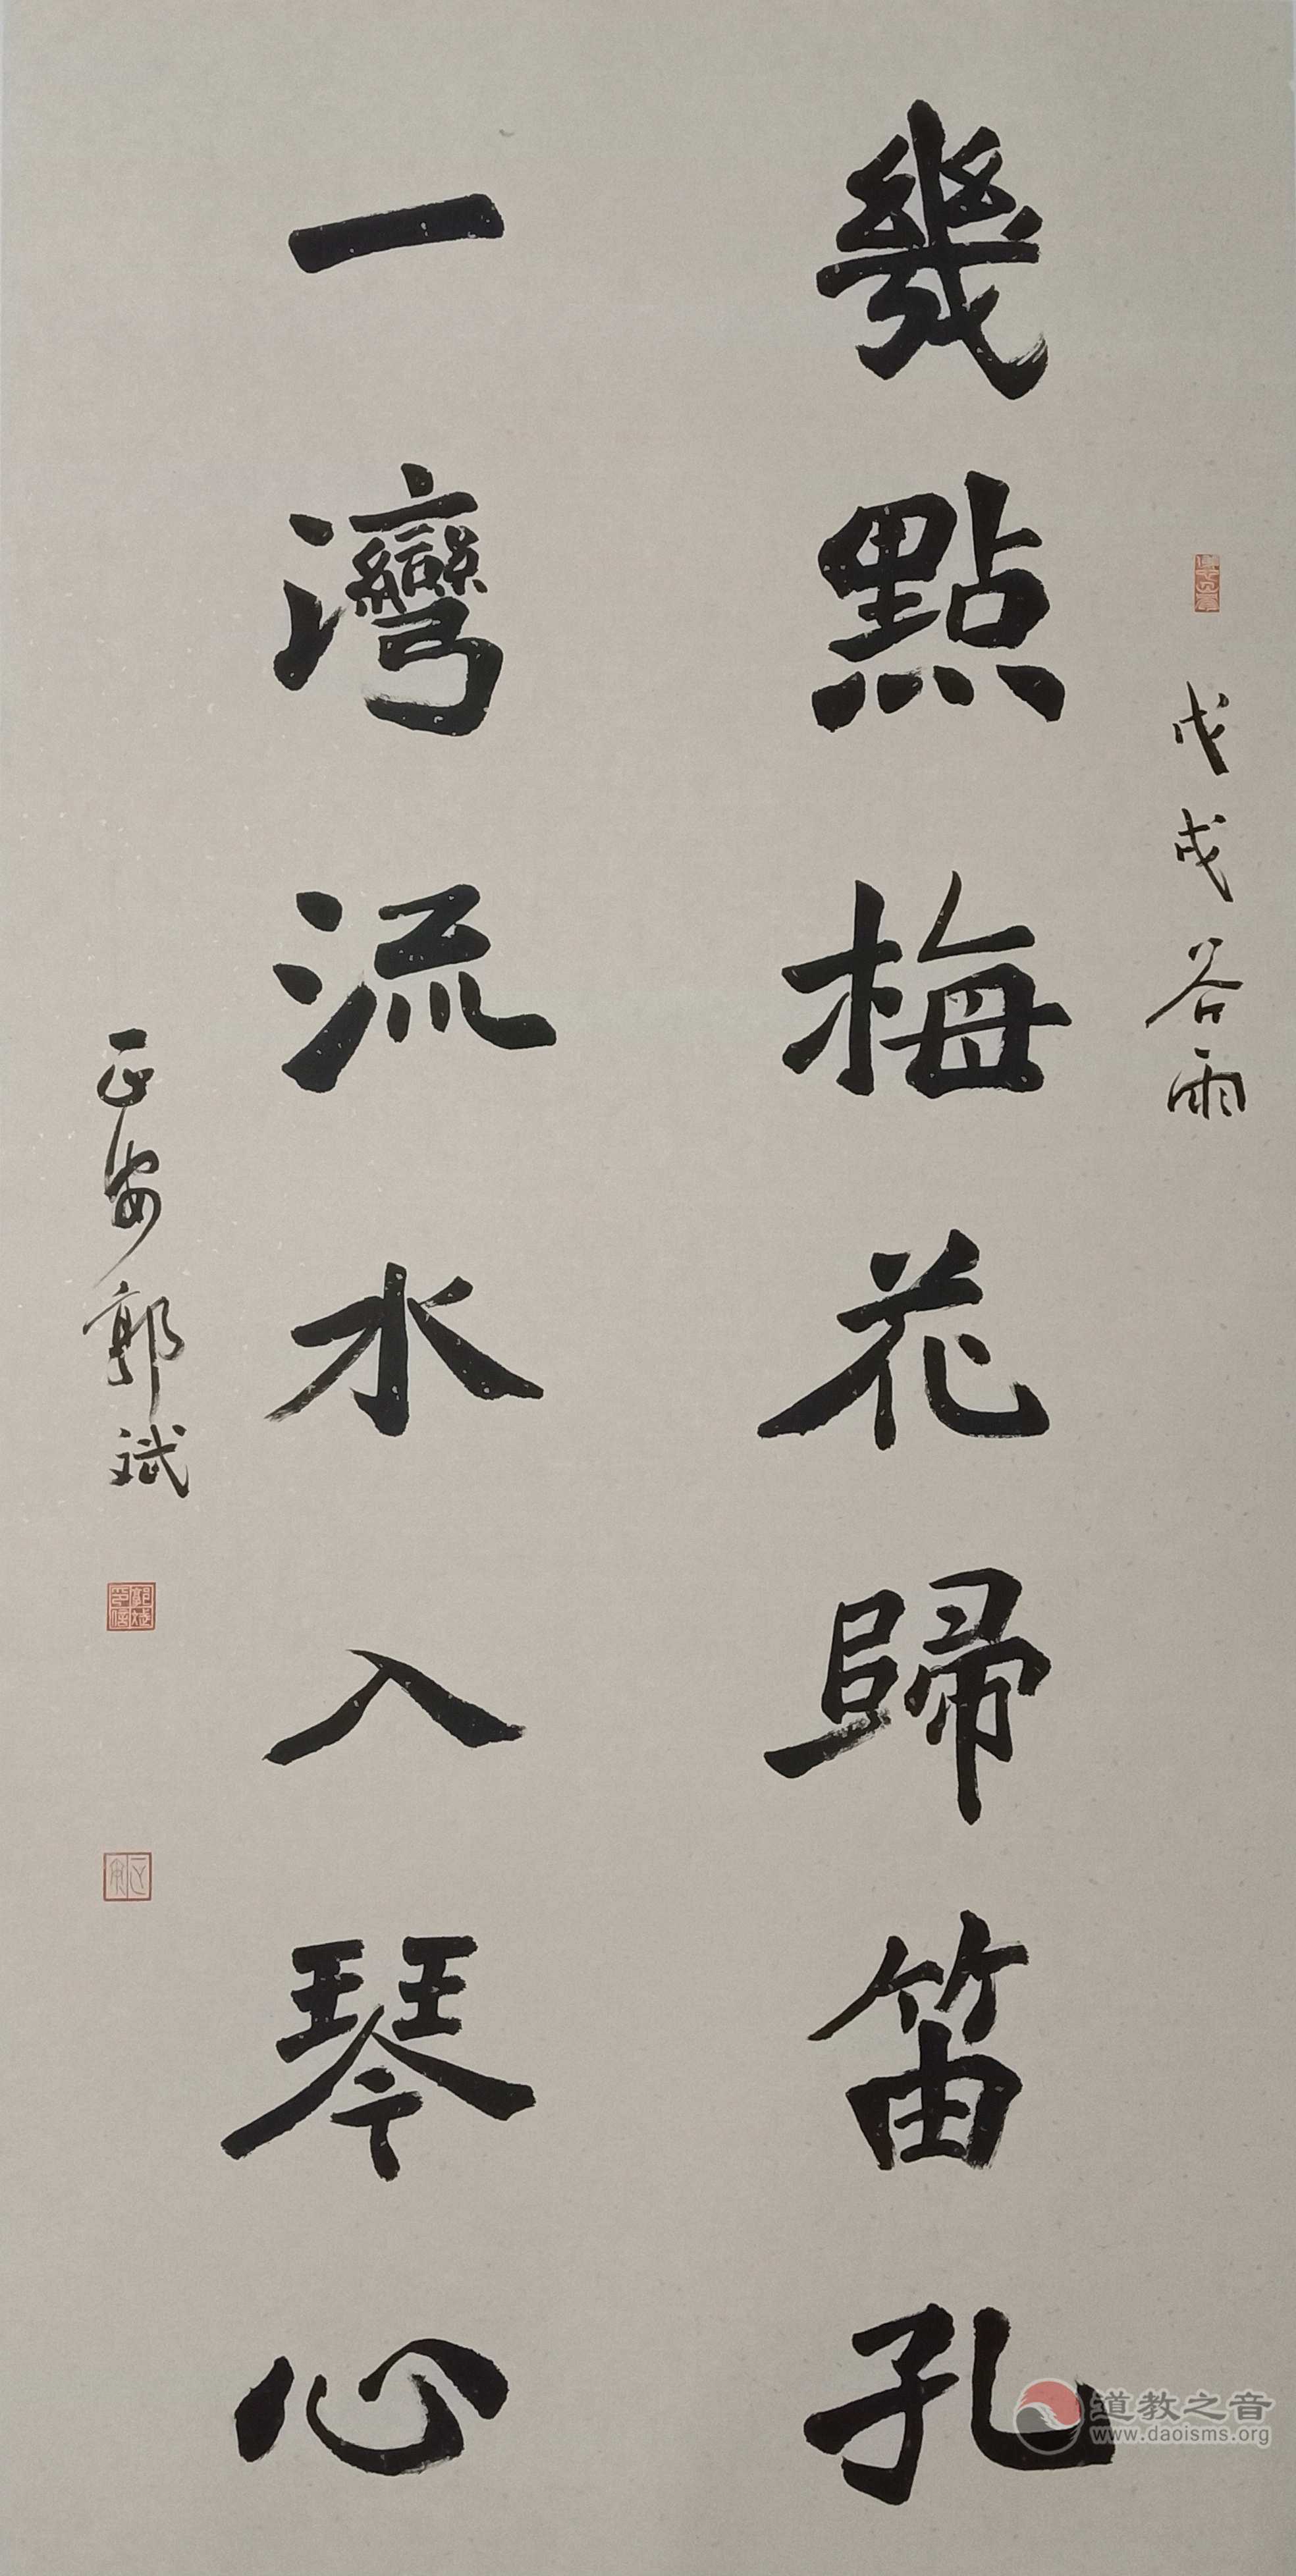 戊戌谷雨
幾點梅花歸笛孔
一灣流水入琴心
正安郭斌
郭斌印信
道教之音
www.daoisms.org